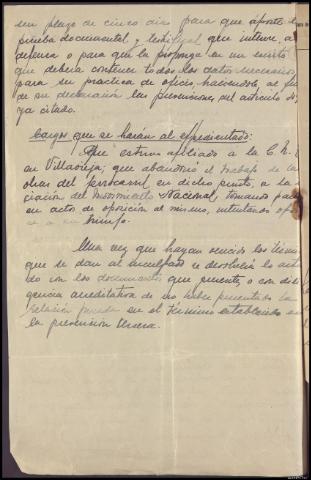 un plazo de cinco dias para que aporte la
prueba documental y testifical que interese a
defensa o para que la proponga en un escrito
que debera contener todos los datos necesarios
para su practica de oficio, haciendole al fin
de su declaracion las prevenciones del articulo
ya citado.
Cargos que se haran al expedientado:
Que estuvo afiliado a la C.N.
en Villavieja; que abandono el trabajo de las
obras del ferrocarril en dicho punto, a la
ciación del Movimiento Nacional, tomando parte
en actos de oposición al mismo, intentando
a su triunfo.
Una vez que hayan vencido los
que se dan al inculpado se devolverá lo
do con los documentos que presente, o con dili
gencia acreditativa de no haber presentado la
relación jurada en el término establecido en
la prevencion tercera.